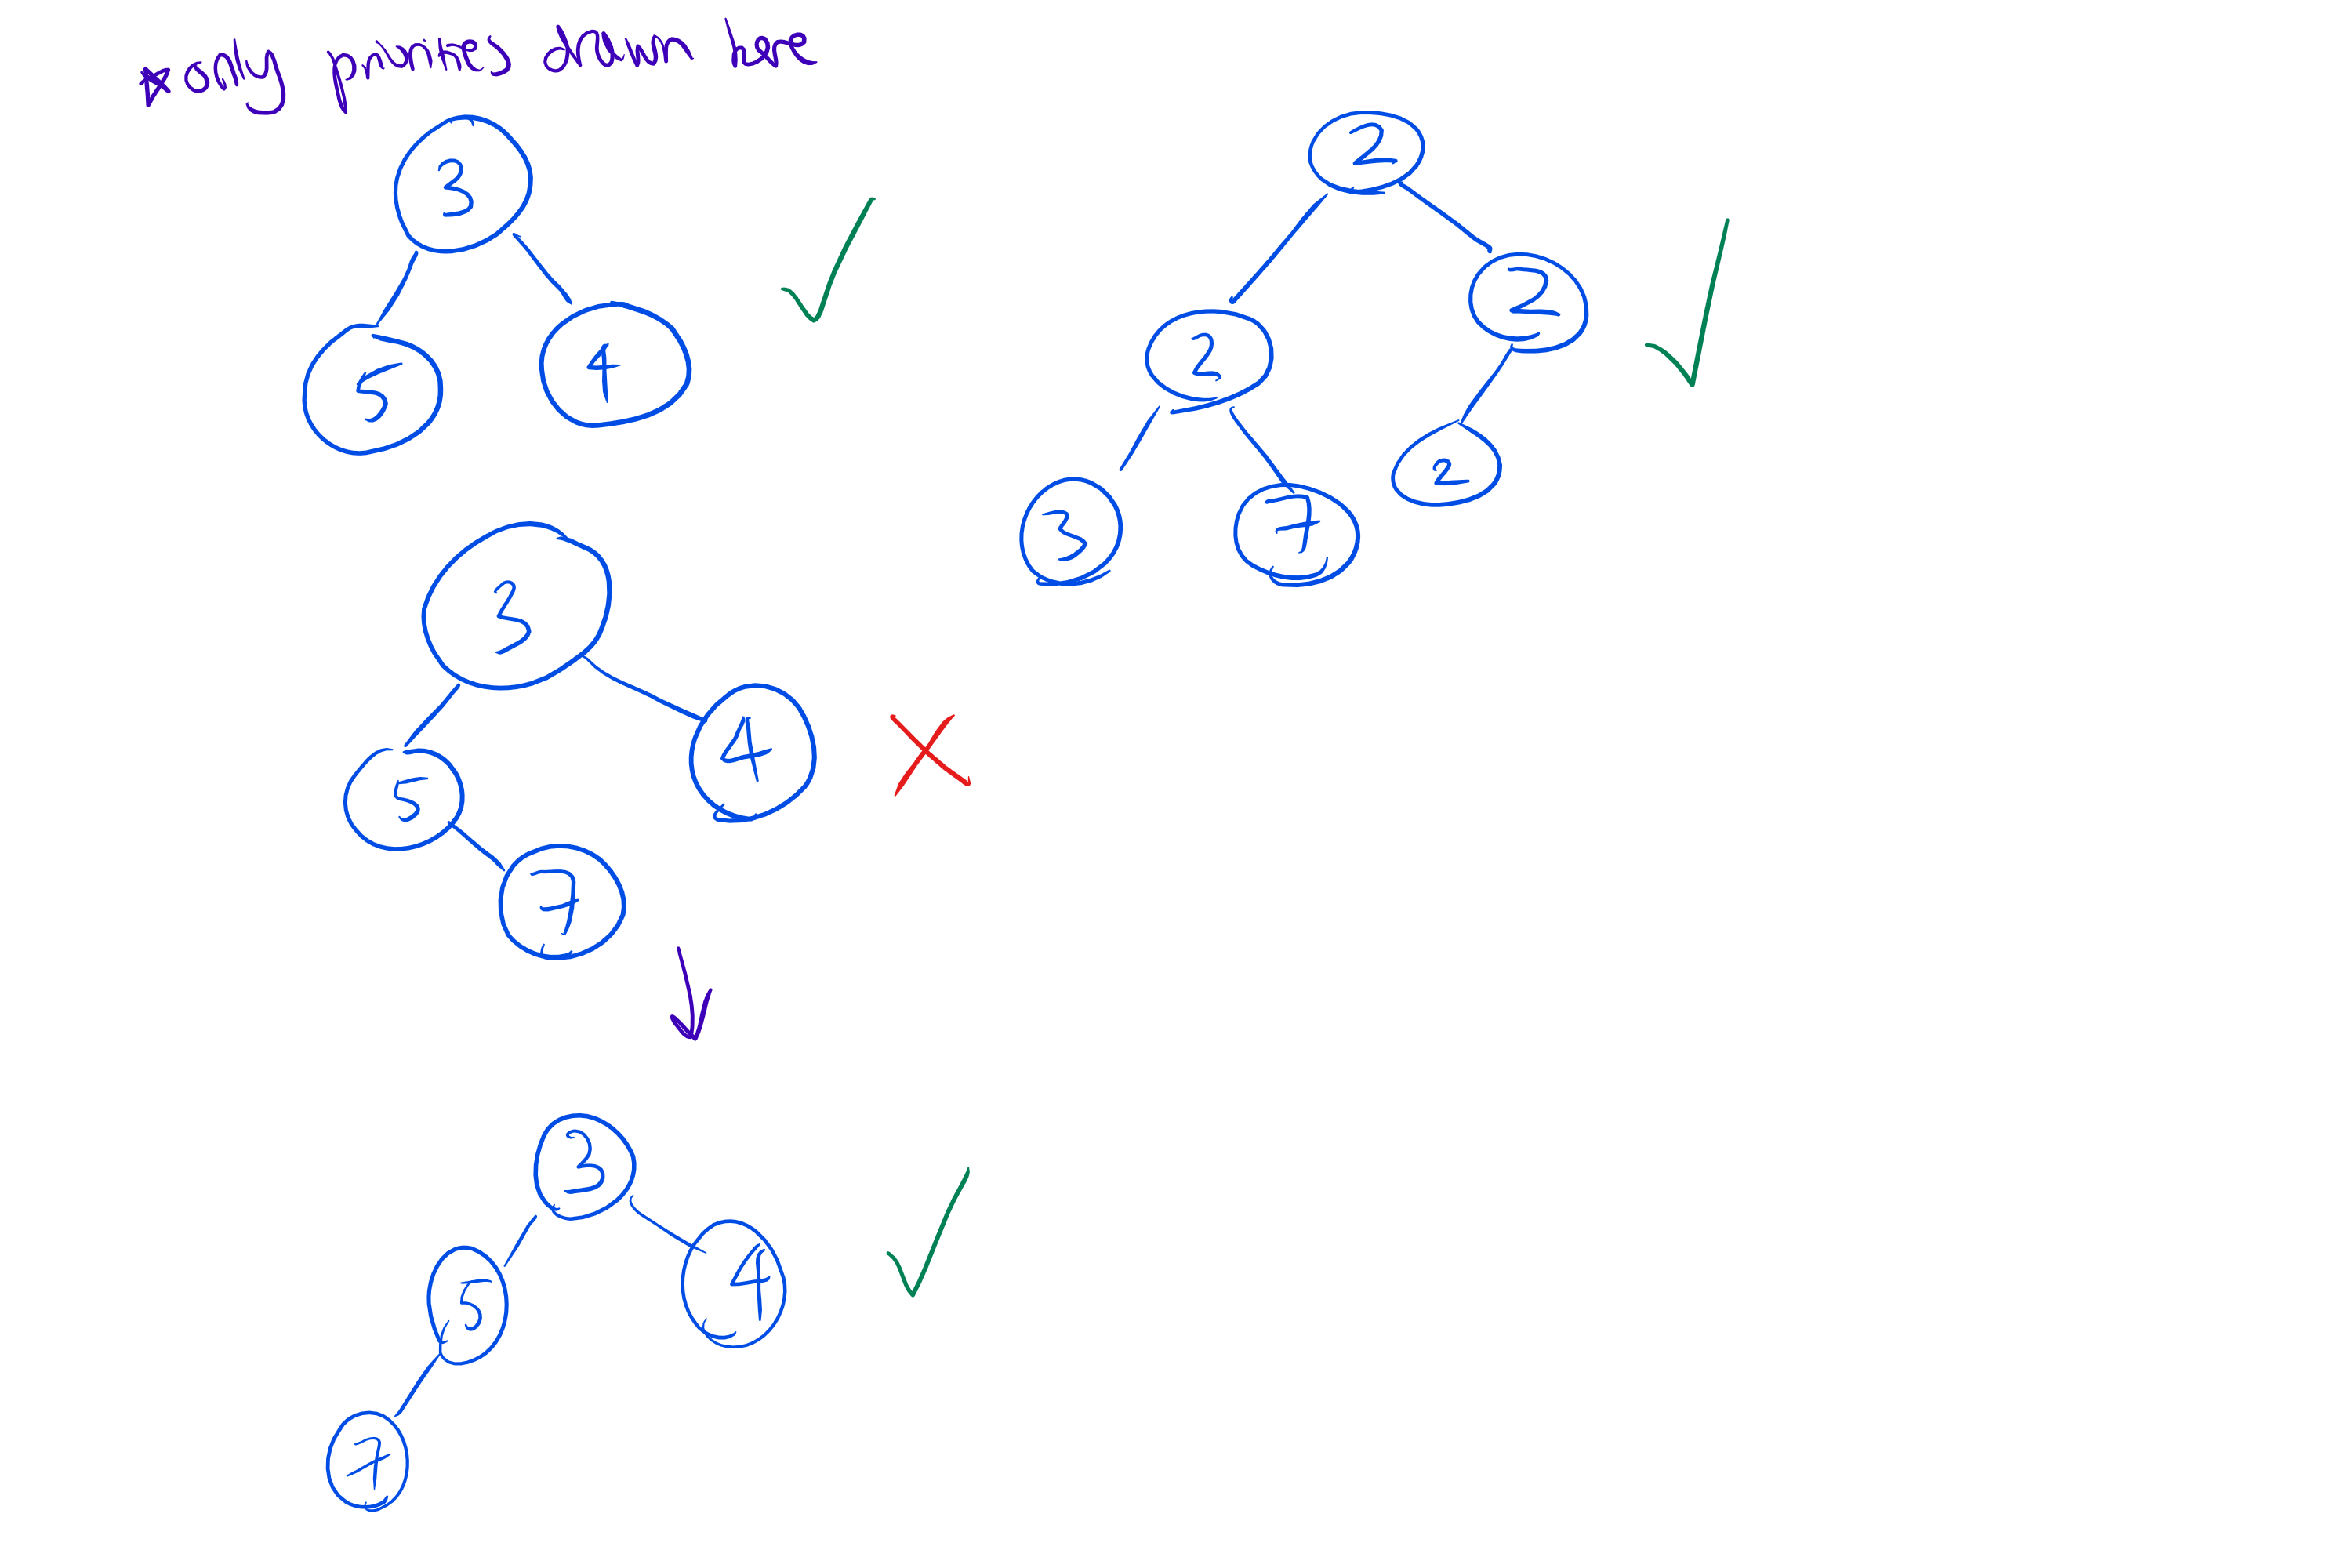 * only priorities down here
3
5 4
2
2 2
3 7 2
3
5 4
7
3
5 4
7